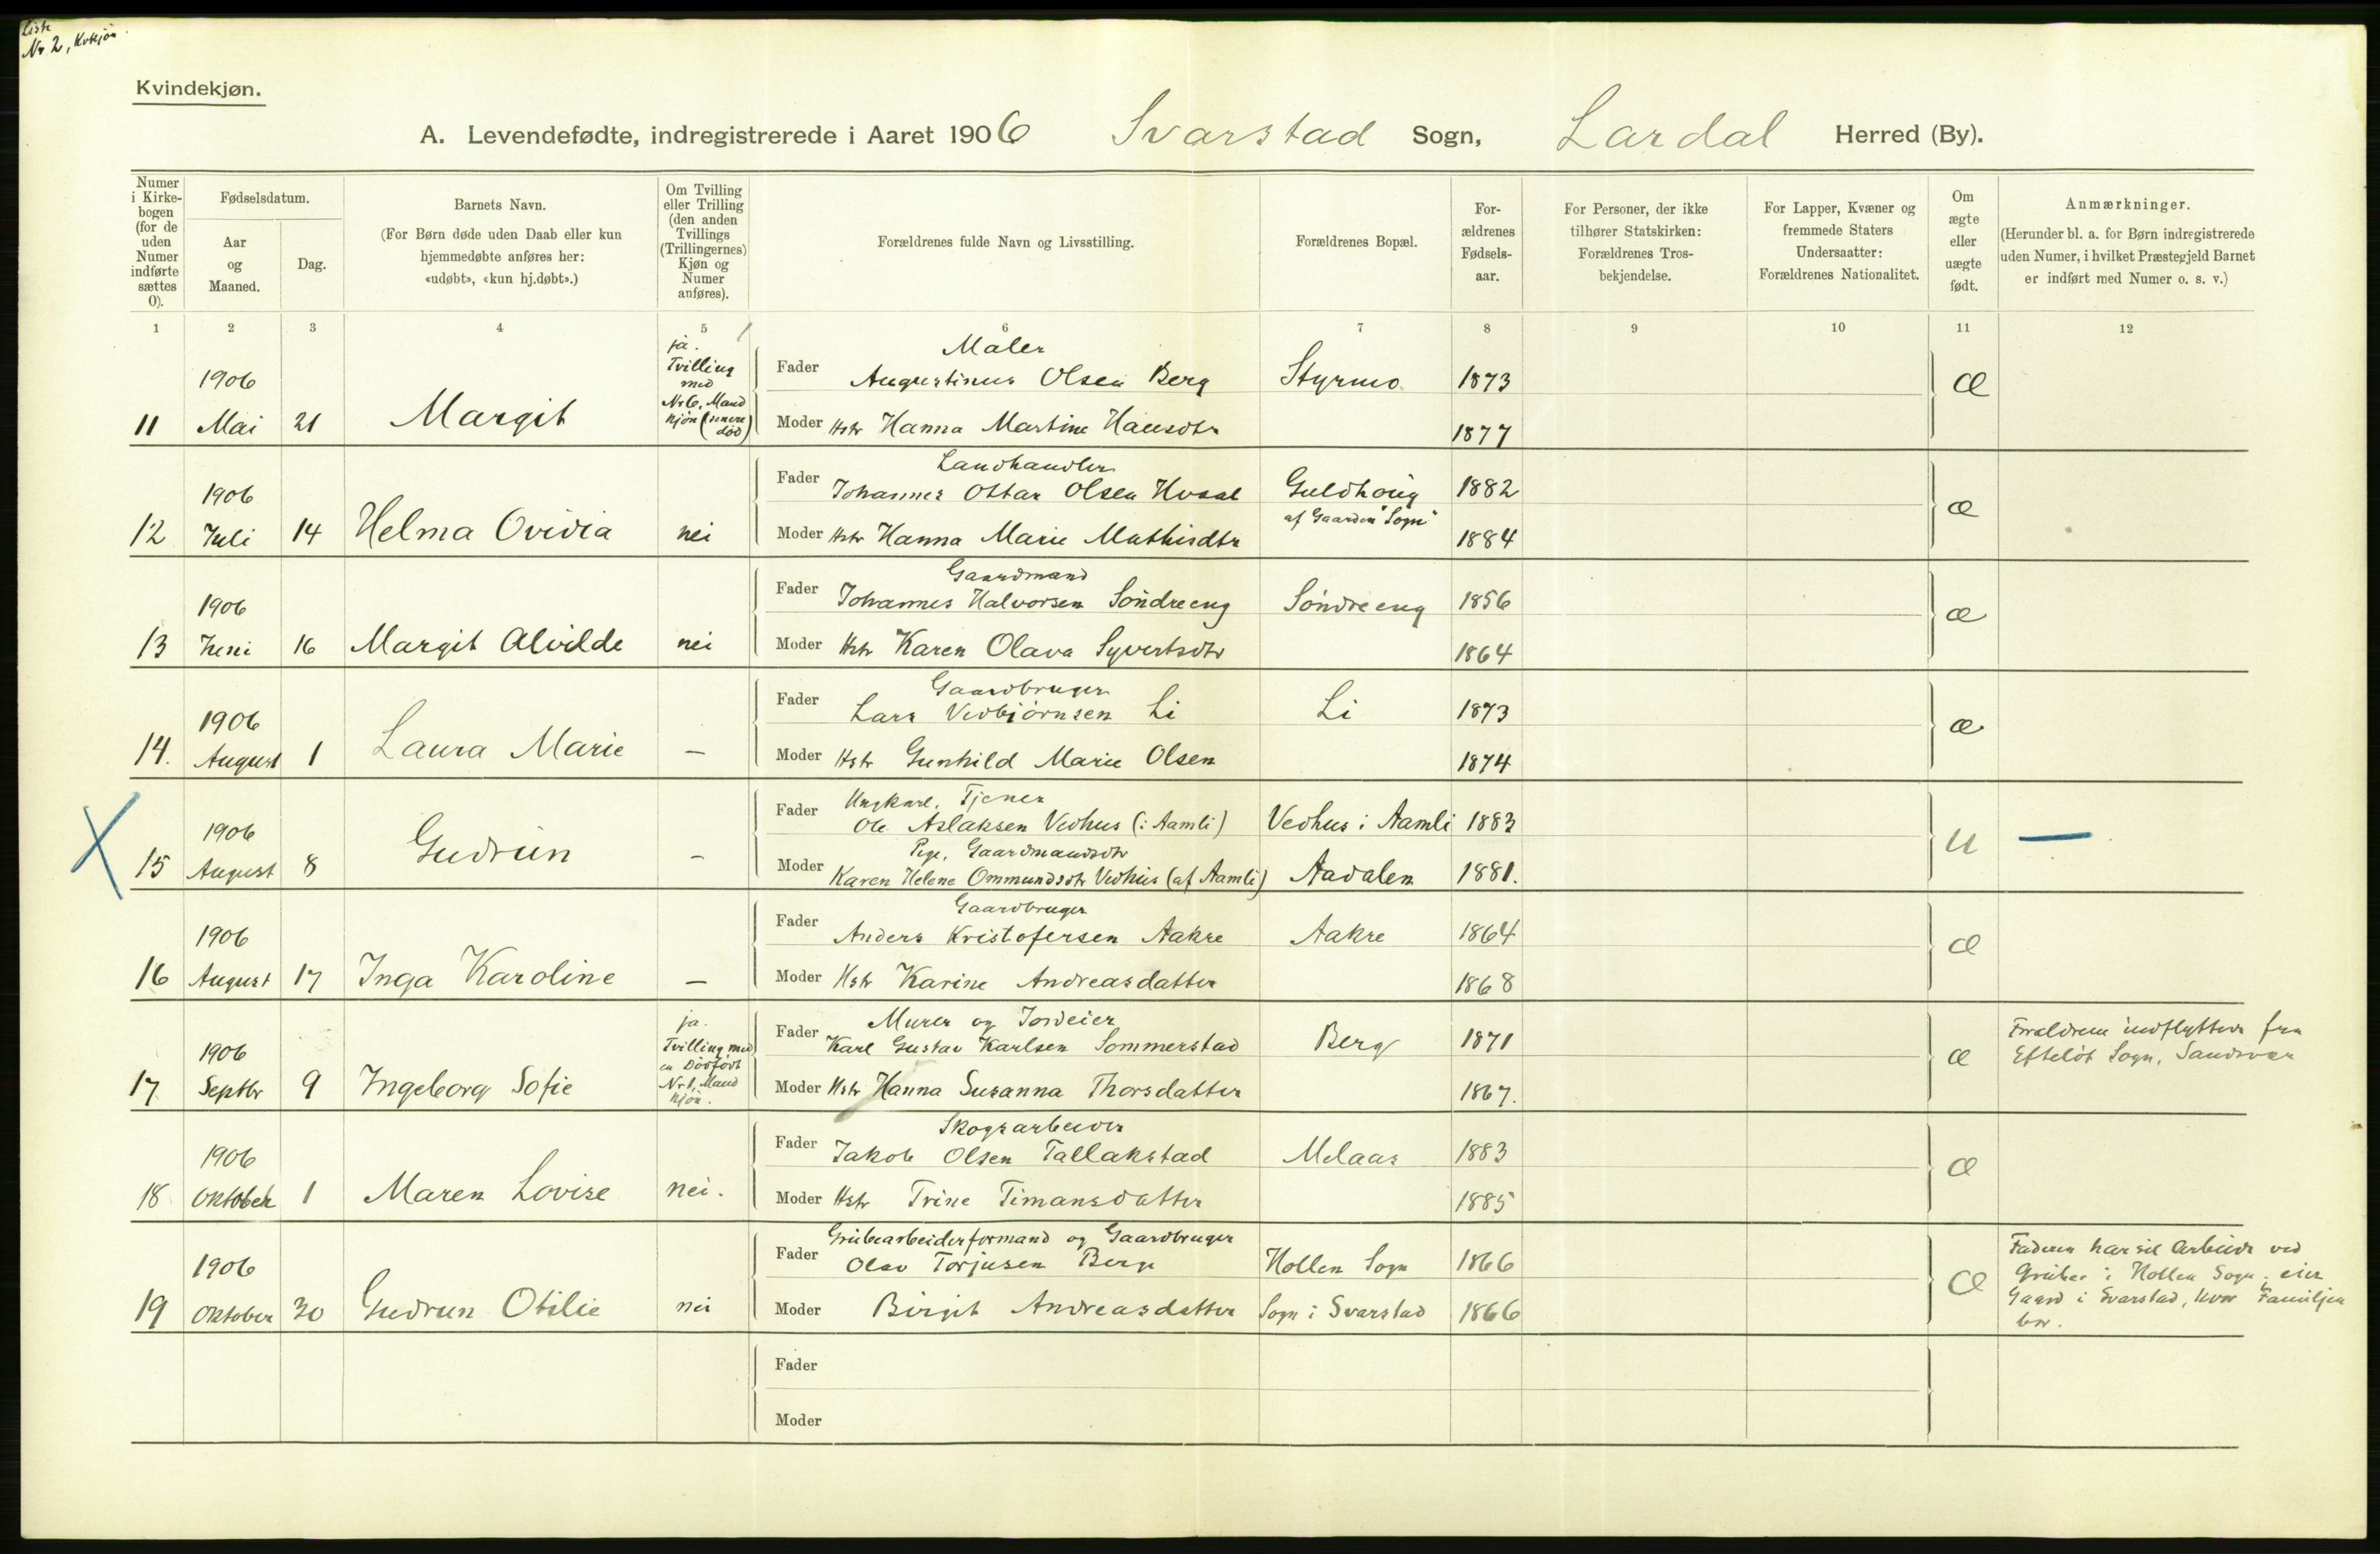 Liste
Nr 2, Kvkjøn.
Kvindekjøn.
A. Levendefødte, indregistrerede i Aaret 1906 Svarstad Sogn, Lardal Herred (By).
Numer i Kirke-bogen (for de uden Numer indførte sættes 0).
Fødselsdatum.
Aar og Maaned.
Dag.
Barnets Navn.
(For Børn døde uden Daab eller kun hjemmedøbte anføres her: «udøbt», «kun hj.døbt».)
Om Tvilling eller Trilling (den anden Tvillings (Trillingernes) Kjøn og Numer anføres).
Forældrenes fulde Navn og Livsstilling.
Forældrenes Bopæl.
For-ældrenes Fødsels-aar.
For Personer, der ikke tilhører Statskirken: Forældrenes Tros-bekjendelse.
For Lapper, Kvæner og fremmede Staters Undersaatter: Forældrenes Nationalitet.
Om ægte eller uægte født.
Anmærkninger.
(Herunder bl. a. for Børn indregistrerede uden Numer, i hvilket Præstegjeld Barnet er indført med Numer o. s. v.)
1 2 3 4 5 6 7 8 9 10 11 12
11 1906 Mai 21 Margit
ja. Tvilling med Nr 6, Mand kjøn (senere død)
Maler
Fader Augustinus Olsen Berg Styrmo 1873 æ
Moder Hstr Hanna Martine Hansdtr 1877
12 1906 Juli 14 Helma Ovidia nei
Landhandler
Fader Johannes Ottar Olsen Hvaal Guldhoug 1882 æ
af Gaarden "Sogn"
Moder Hstr Hanna Marie Mathisdtr 1884
13 1906 Juni 16 Margit Alvilde nei
Gaardmand
Fader Johannes Halvorsen Søndreeng Søndreeng 1856 æ
Moder Hstr Karen Olava Syvertsdtr 1864
14. 1906 August 1 Laura Marie –
Gaardbruger
Fader Lars Vedbjørnsen Li Li 1873 æ
Moder Hstr Gunhild Marie Olsen 1874
X 15 1906 August 8 Gudrun –
Ungkarl, Tjener
Fader Ole Aslaksen Vedhus (i Aamli) Vedhus i Aamli 1883 u —
Pige, Gaardmandsdtr
Moder Karen Helene Ommundsdtr Vedhus (af Aamli) Aadalen 1881.
16 1906 August 17 Inga Karoline –
Gaardbruger
Fader Anders Kristofersen Aakre Aakre 1864 æ
Moder Hstr Karine Andreasdatter 1868
17 1906 Septbr 9 Ingeborg Sofie
ja. Tvilling med en Dødfødt Nr 1, Mand kjøn.
Murer og Jordeier
Fader Karl Gustav Karlsen Sommerstad Berg 1871 æ
Moder Hstr Hanna Susanna Thorsdatter 1867.
Forældrene indflyttede fra
Efteløt Sogn, Sandsvær
18 1906 Oktober 1 Maren Lovise nei.
Skogsarbeider
Fader Jakob Olsen Tallakstad Melaas 1883 æ
Moder Hstr Trine Timansdatter 1885
19 1906 Oktober 30 Gudrun Otilie nei
Grubearbeiderformand og Gaardbruger
Fader Olav Torjusen Berge Hollen Sogn 1866 æ
Moder Birgit Andreasdatter Sogn i Svarstad 1866
Faderen har sit Arbeide ved
Gruber i Hollen Sogn; eier
Gaard i Svarstad, hvor Familjen
bor.
Fader
Moder